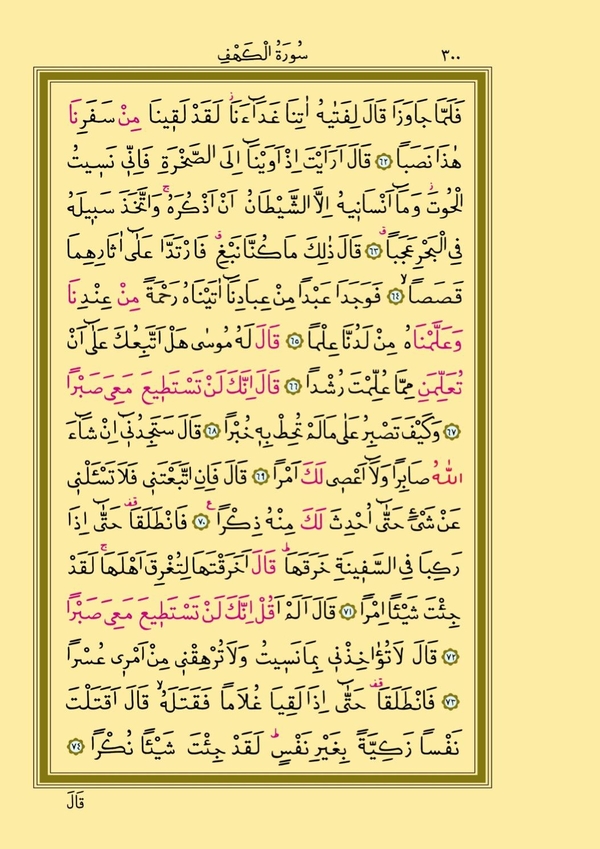 ٣٠٠ سُورَةُ الْكَهْفِ
فَلَمَّا جَاوَزَا قَالَ لِفَتٰيهُ اٰتِنَا غَدَٓاءَنَاۘ لَقَدْ لَقٖينَا مِنْ سَفَرِنَا
هٰذَا نَصَباً ﴿٦٢﴾ قَالَ اَرَاَيْتَ اِذْ اَوَيْنَٓا اِلَى الصَّخْرَةِ فَاِنّٖي نَسٖيتُ
الْحُوتَۘ وَمَٓا اَنْسَانٖيهُ اِلَّا الشَّيْطَانُ اَنْ اَذْكُرَهُۚ وَاتَّخَذَ سَبٖيلَهُ
فِي الْبَحْرِۗ عَجَباً ﴿٦٣﴾ قَالَ ذٰلِكَ مَا كُنَّا نَبْغِۗ فَارْتَدَّا عَلٰٓى اٰثَارِهِمَا
قَصَصاًۙ ﴿٦٤﴾ فَوَجَدَا عَبْداً مِنْ عِبَادِنَٓا اٰتَيْنَاهُ رَحْمَةً مِنْ عِنْدِنَا
وَعَلَّمْنَاهُ مِنْ لَدُنَّا عِلْماً ﴿٦٥﴾ قَالَ لَهُ مُوسٰى هَلْ اَتَّبِعُكَ عَلٰٓى اَنْ
تُعَلِّمَنِ مِمَّا عُلِّمْتَ رُشْداً ﴿٦٦﴾ قَالَ اِنَّكَ لَنْ تَسْتَطٖيعَ مَعِيَ صَبْراً
﴿٦٧﴾ وَكَيْفَ تَصْبِرُ عَلٰى مَا لَمْ تُحِطْ بِهٖ خُبْراً ﴿٦٨﴾ قَالَ سَتَجِدُنٖٓي اِنْ شَٓاءَ
اللّٰهُ صَابِراً وَلَٓا اَعْصٖي لَكَ اَمْراً ﴿٦٩﴾ قَالَ فَاِنِ اتَّبَعْتَنٖي فَلَا تَسْـَٔلْنٖي
عَنْ شَيْءٍ حَتّٰٓى اُحْدِثَ لَكَ مِنْهُ ذِكْراًࣖ ﴿٧٠﴾ فَانْطَلَقَا حَتّٰٓى اِذَا
رَكِبَا فِي السَّفٖينَةِ خَرَقَهَاۜ قَالَ اَخَرَقْتَهَا لِتُغْرِقَ اَهْلَهَاۚ لَقَدْ
جِئْتَ شَيْـٔاً اِمْراً ﴿٧١﴾ قَالَ اَلَمْ اَقُلْ اِنَّكَ لَنْ تَسْتَطٖيعَ مَعِيَ صَبْراً
﴿٧٢﴾ قَالَ لَا تُؤَاخِذْنٖي بِمَا نَسٖيتُ وَلَا تُرْهِقْنٖي مِنْ اَمْرٖي عُسْراً
﴿٧٣﴾ فَانْطَلَقَا حَتّٰٓى اِذَا لَقِيَا غُلَاماً فَقَتَلَهُۙ قَالَ اَقَتَلْتَ
نَفْساً زَكِيَّةً بِغَيْرِ نَفْسٍۜ لَقَدْ جِئْتَ شَيْـٔاً نُكْراً ﴿٧٤﴾
قَالَ